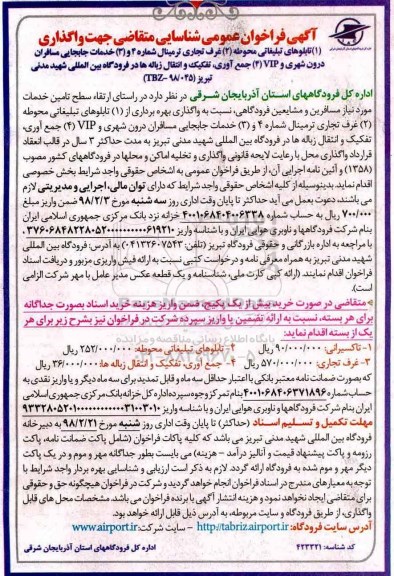 آگهی فراخوان عمومی شناسایی متقاضی جهت واگذاری
(۱)تابلوهای تبلیغاتی محوطه (۲) غرف تجاری ترمینال شماره ۴ و (۳) خدمات جابجایی مسافران
درون شهری و VIP (۴) جمع آوری، تفکیک و انتقال زباله ها در فرودگاه بین المللی شهید مدنی
تبریز (TBZ-۹۸/۰۲۵)
اداره کل فرودگاههای استان آذربایجان شرقی در نظر دارد در راستای ارتقاء سطح تامین خدمات
مورد نیاز مسافرین و مشایعین فرودگاهی، نسبت به واگذاری بهره برداری از (۱) تابلوهای تبلیغاتی محوطه
(۲) غرف تجاری ترمینال شماره ۴ و (۳) خدمات جابجایی مسافران درون شهری و VIP (۴) جمع آوری،
تفکیک و انتقال زباله ها در فرودگاه بین المللی شهید مدنی تبریز به مدت حداکثر ۳ سال در قالب انعقاد
قرارداد واگذاری محل با رعایت لایحه قانونی واگذاری و تخلیه اماکن و محلها در فرودگاههای کشور مصوب
(۱۳۵۸) و آئین نامه اجرایی آن، از طریق فراخوان عمومی به اشخاص حقوقی واجد شرایط بخش خصوصی
اقدام نماید. بدینوسیله از کلیه اشخاص حقوقی واجد شرایط که دارای توان مالی، اجرایی و مدیریتی لازم
می باشند، دعوت بعمل می آید حداکثر تا پایان وقت اداری روز سه شنبه مورخ ۹۸/۲/۳ ضمن واریز مبلغ
۷۰۰/۰۰۰ ریال به حساب شماره ۴۰۰۱۰۶۸۴۰۴۰۰۶۳۳۸ خزانه نزد بانک مرکزی جمهوری اسلامی ایران
بنام شرکت فرودگاهها و ناوبری هوایی ایران و با شناسه واریز
با مراجعه به اداره بازرگانی و حقوقی فرودگاه تبریز (تلفن: ۰۴۱۳۲۶۰۷۵۴۳) به آدرس: فرودگاه بین المللی
شهید مدنی تبریز به همراه معرفی نامه و درخواست کتبی نسبت به ارائه فیش واریزی مزبور و دریافت اسناد
فراخوان اقدام نمایند. (ارائه کپی کارت ملی، شناسنامه و یک قطعه عکس مدیر عامل با مهر شرکت الزامی
است).
متقاضی در صورت خرید بیش از یک پکیج، ضمن واریز هزینه خرید اسناد بصورت جداگانه
برای هر بسته، نسبت به ارائه تضمین یا واریز سپرده شرکت در فراخوان نیز بشرح زیر برای هر
یک از بسته اقدام نماید:
۱- تاکسیرانی: ۹۰/۰۰۰/۰۰۰ ریال ۲- تابلوهای تبلیغاتی محوطه: ۲۵۲/۰۰۰/۰۰۰ ریال
۳- غرف تجاری: ۵۷۰/۰۰۰/۰۰۰ ریال ۴- جمع آوری، تفکیک و انتقال زباله ها: ۳۶/۰۰۰/۰۰۰ ریال
که بصورت ضمانت نامه معتبر بانکی با اعتبار حداقل سه ماه و قابل تمدید برای سه ماه دیگر و یا واریز نقدی به
حساب شماره ۴۰۰۱۰۶۸۴۰۶۳۷۱۸۹۶ بنام تمرکز وجوه سپرده اداره کل خزانه بانک مرکزی جمهوری اسلامی
ایران بنام شرکت فرودگاهها و ناوبری هوایی ایران و با شناسه واریز
مهلت تکمیل و تسلیم اسناد (حداکثر) تا پایان وقت اداری روز شنبه مورخ ۹۸/۲/۲۱ به دبیرخانه
فرودگاه بین المللی شهید مدنی تبریز می باشد که کلیه پاکات فراخوان (شامل پاکت ضمانت نامه، پاکت
رزومه و پاکت پیشنهاد قیمت و آنالیز درآمد - هزینه) می بایست بطور جداگانه مهر و موم و در یک پاکت
دیگر مهر و موم شده به فرودگاه ارائه گردد. لازم به ذکر است ارزیابی و شناسایی بهره بردار واجد شرایط با
توجه به معیارهای مندرج در اسناد فراخوان انجام خواهد گردید و شرکت در فراخوان هیچگونه حق و حقوقی
برای متقاضی ایجاد نخواهد نمود و هزینه انتشار آگهی با برنده فراخوان می باشد. مشخصات محل های قابل
واگذاری، از طریق فرودگاه و سایت مربوطه، به آدرس ذیل قابل ارائه خواهد بود.
آدرس سایت فرودگاه: http://tabriz.airport.ir - سایت شرکت: www.airport.ir
کد شناسه: ۴۲۳۳۲۱ اداره کل فرودگاههای استان آذربایجان شرقی